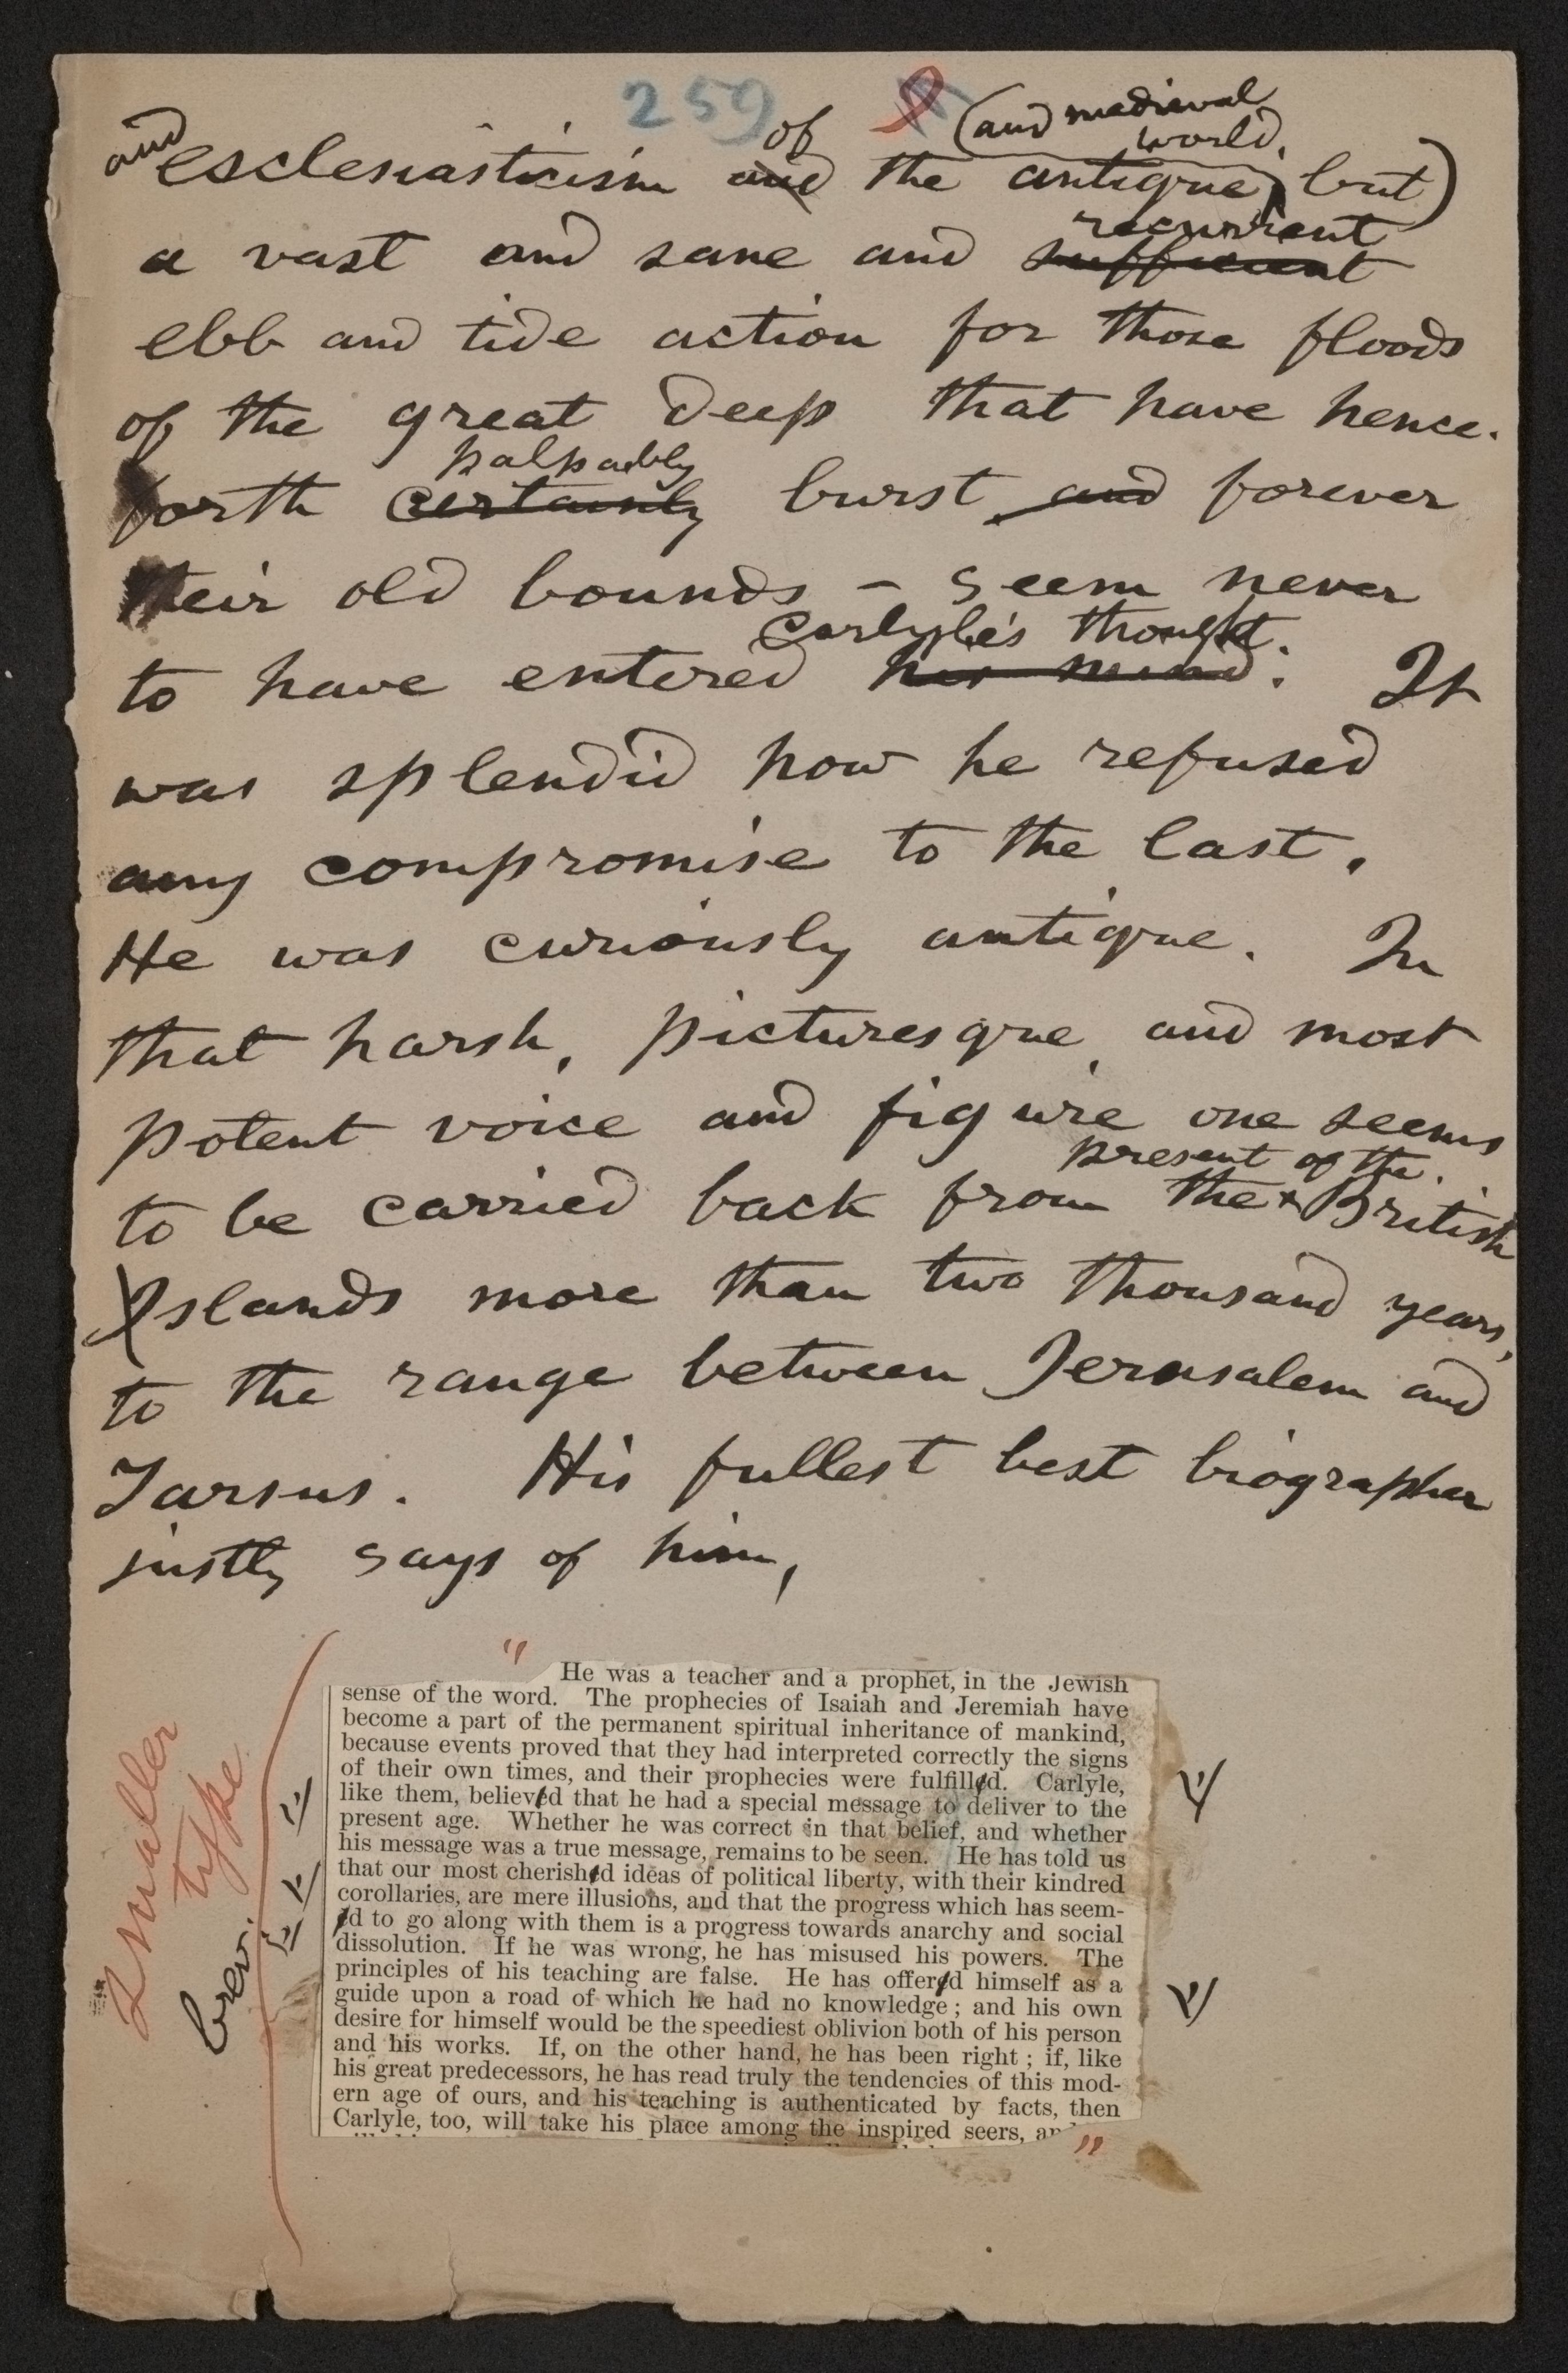 259
and esclesiasticism and of the antique, (and mediæval world, but)
a vast and sane and sufficient recurrent
ebb and tide action for those floods
of the great deep that have hence-
forth certainly palpably burst and forever
their old bounds – seem never
to have entered his mind. Carlyle's thought. It
was splendid how he refused
any compromise to the last.
He was curiously antique. In
that harsh, picturesque, and most
potent voice and figure one seems
to be carried back from the present of the British
Islands more than two thousand years,
to the range between Jerusalem and
Tarsus. His fullest best biographer
justly says of him,
smaller type
brev.
" He was a teacher and a prophet, in the Jewish
sense of the word. The prophecies of Isaiah and Jeremiah have
become a part of the permanent spiritual inheritance of mankind,
because events proved that they had interpreted correctly the signs
of their own times, and their prophecies were fulfilled. Carlyle,
like them, believed that he had a special message to deliver to the
present age. Whether he was correct in that belief, and whether
his message was a true message, remains to be seen. He has told us
that our most cherished ideas of political liberty, with their kindred
corollaries, are mere illusions, and that the progress which has seem-
ed to go along with them is a progress towards anarchy and social
dissolution. If he was wrong, he has misused his powers. The
principles of his teaching are false. He has offered himself as a
guide upon a road of which he had no knowledge; and his own
desire for himself would be the speediest oblivion both of his person
and his works. If, on the other hand, he has been right; if, like
his great predecessors, he has read truly the tendencies of this mod-
ern age of ours, and his teaching is authenticated by facts, then
Carlyle, too, will take his place among the inspired seers, "